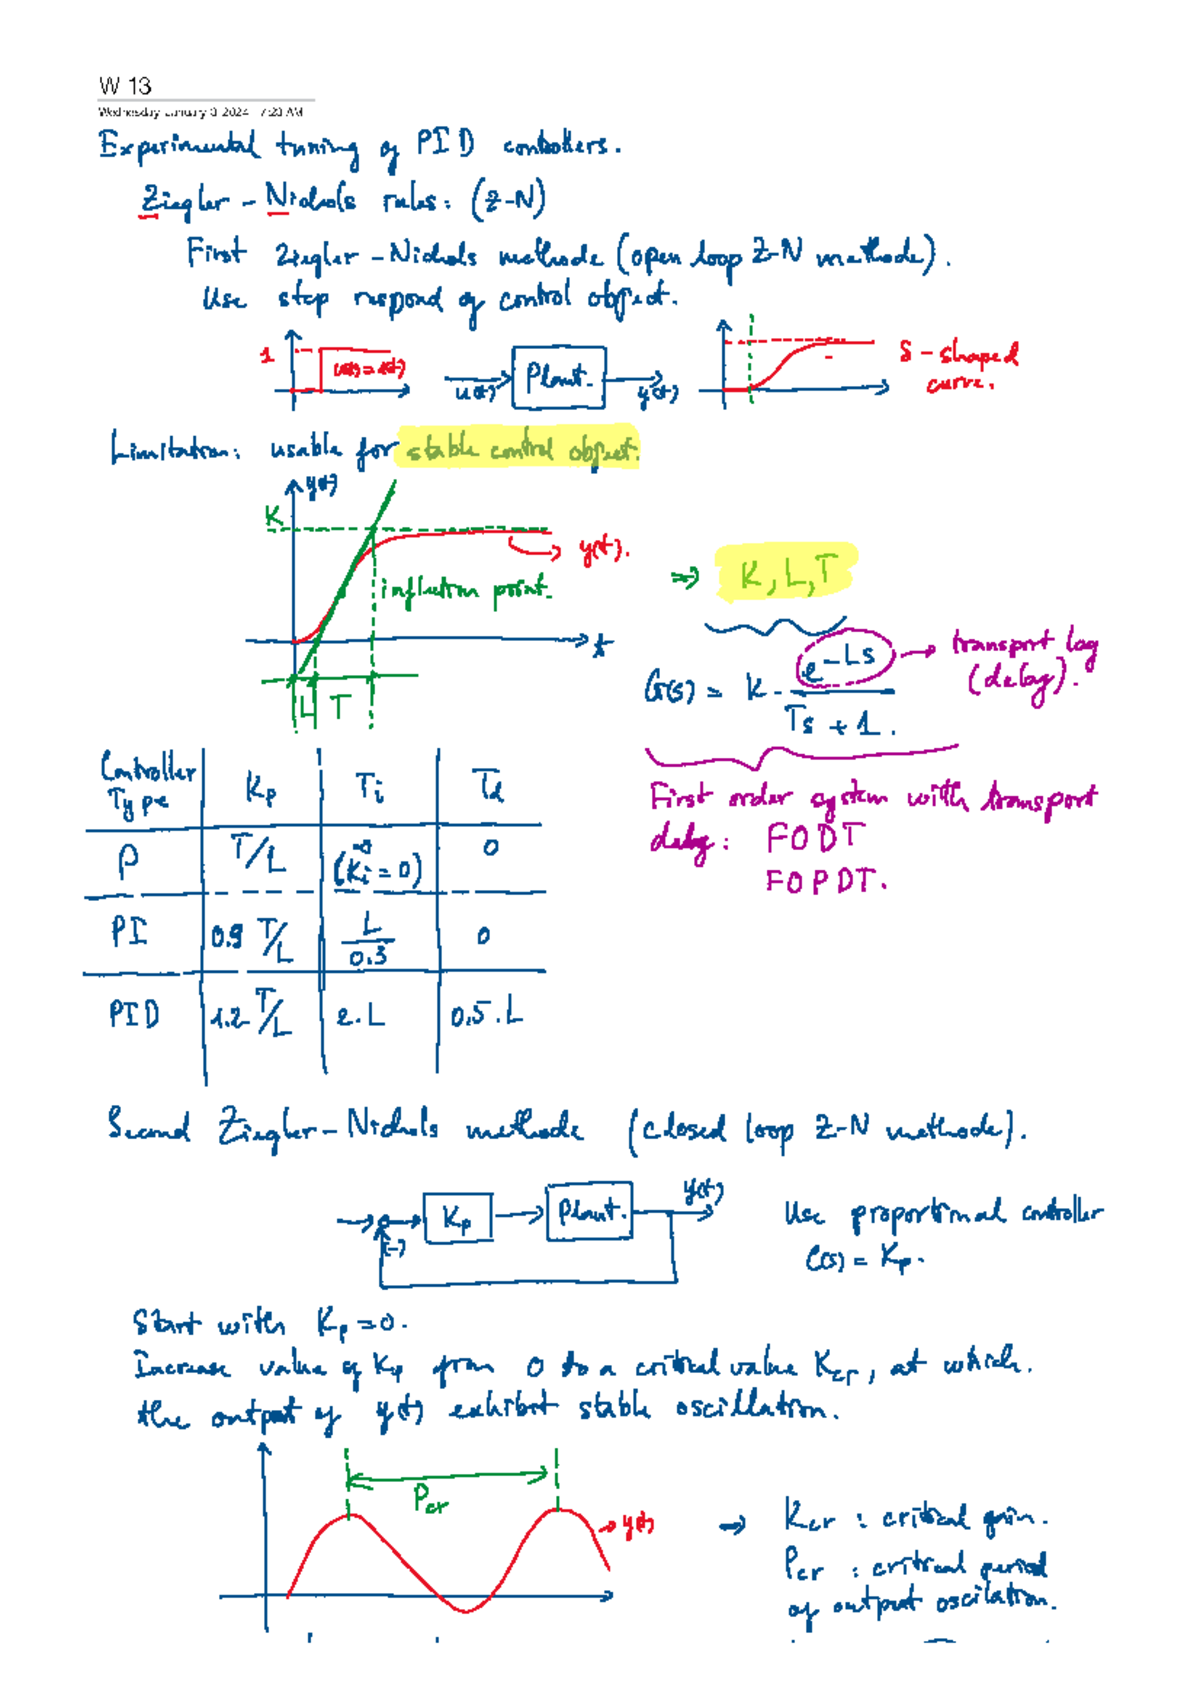 W 13
Wednesday, January 3, 2024 7:23 AM
Experimental tuning of PID controllers.
Ziegler - Nichols rules: (Z-N)
First Ziegler - Nichols methode (open loop Z-N methode).
Use step respond of control object.
1
u(t) = 1(t)
u(t)
Plant.
y(t)
S - shaped
curve.
Limitation: usable for stable control object.
y(t)
K
y(t).
inflection point.
t
L T
⇒ K, L, T
G(s) = K . e^-Ls / Ts + 1.
transport lag
(delay).
First order system with transport
delay: FODT
FOPDT.
Controller Type Kp Ti Td
P T/L ∞ (Ki = 0) 0
PI 0.9 T/L L/0.3 0
PID 1.2 T/L 2.L 0.5.L
Second Ziegler - Nichols methode (closed loop Z-N methode).
(-)
Kp
Plant.
y(t)
Use proportional controller
C(s) = Kp.
Start with Kp = 0.
Increase value of Kp from 0 to a critical value Kcr, at which.
the output of y(t) exhibit stable oscillation.
Pcr
y(t)
→ Kcr : critical gain.
Pcr : critical period
of output oscilation.